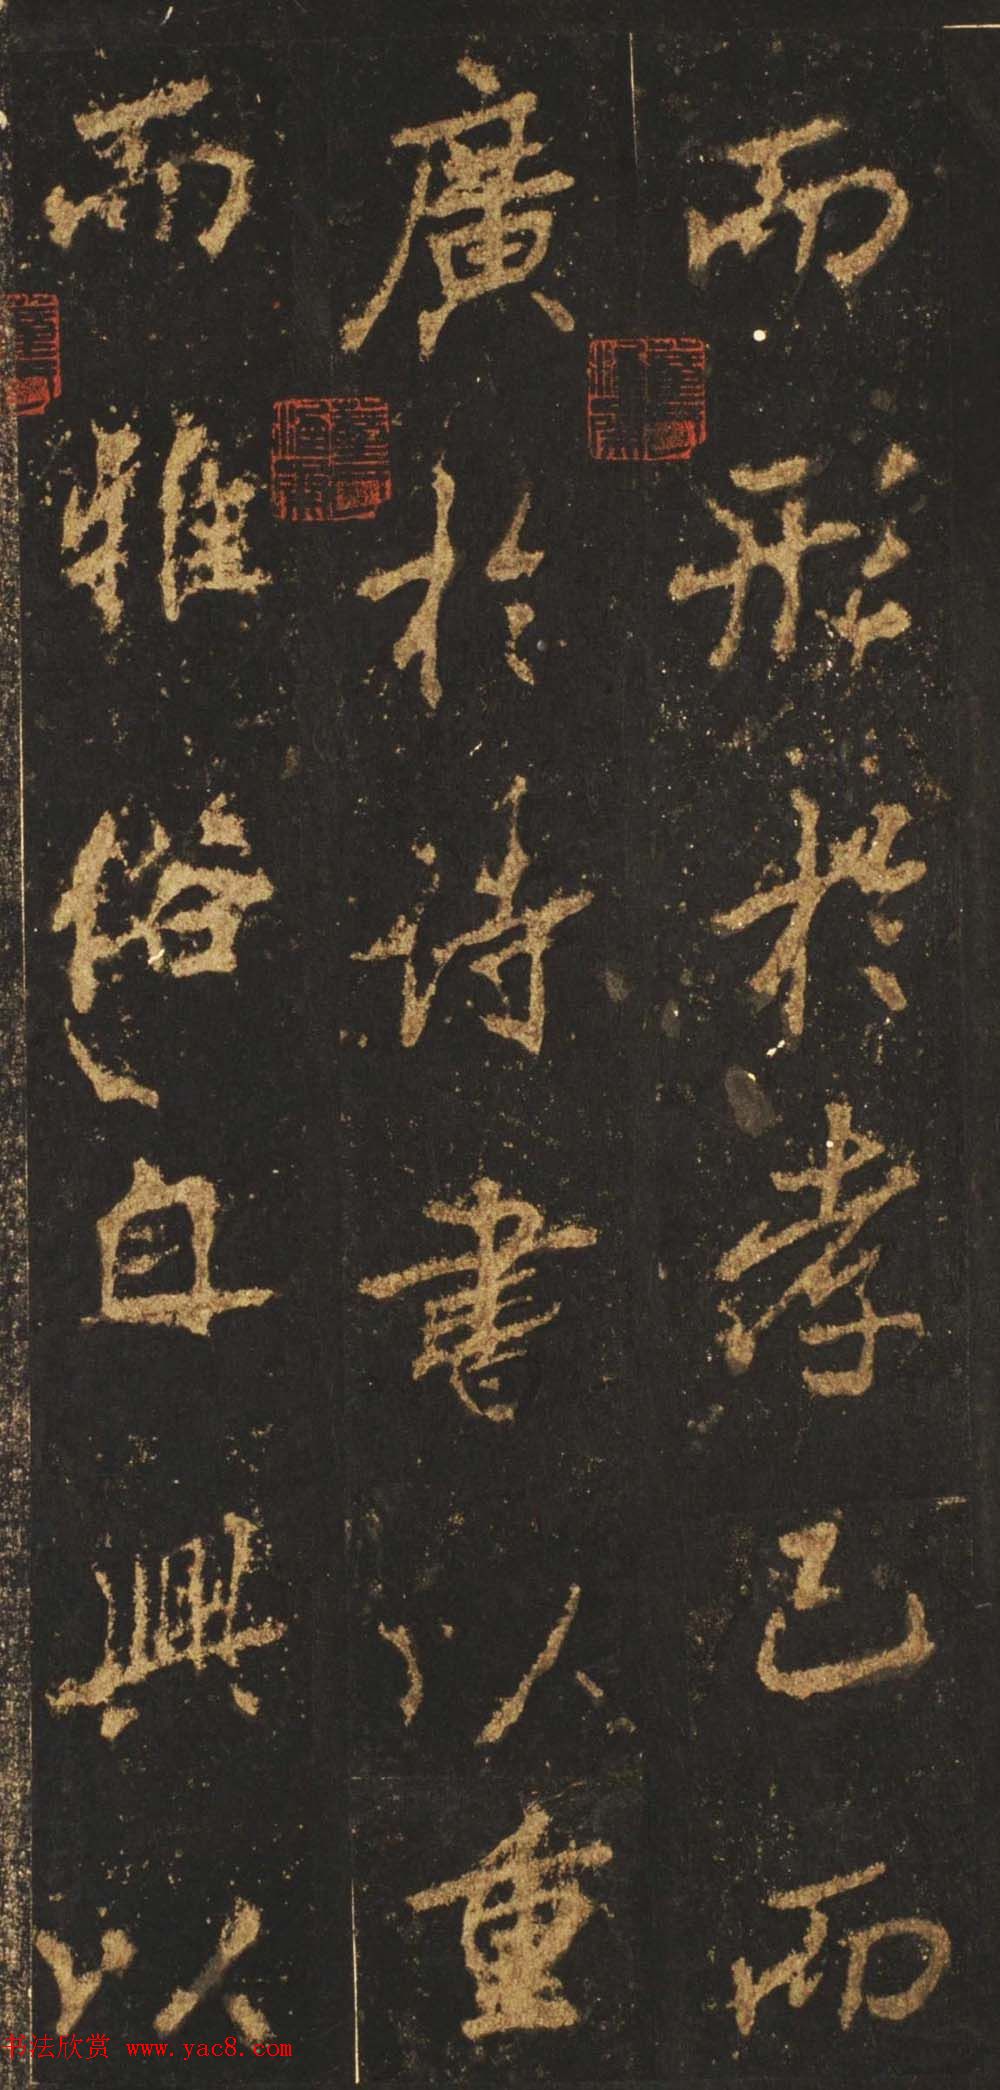 而形於孝已而
廣於詩書以重
而雅俗自興以
书法欣赏 www.yac8.com